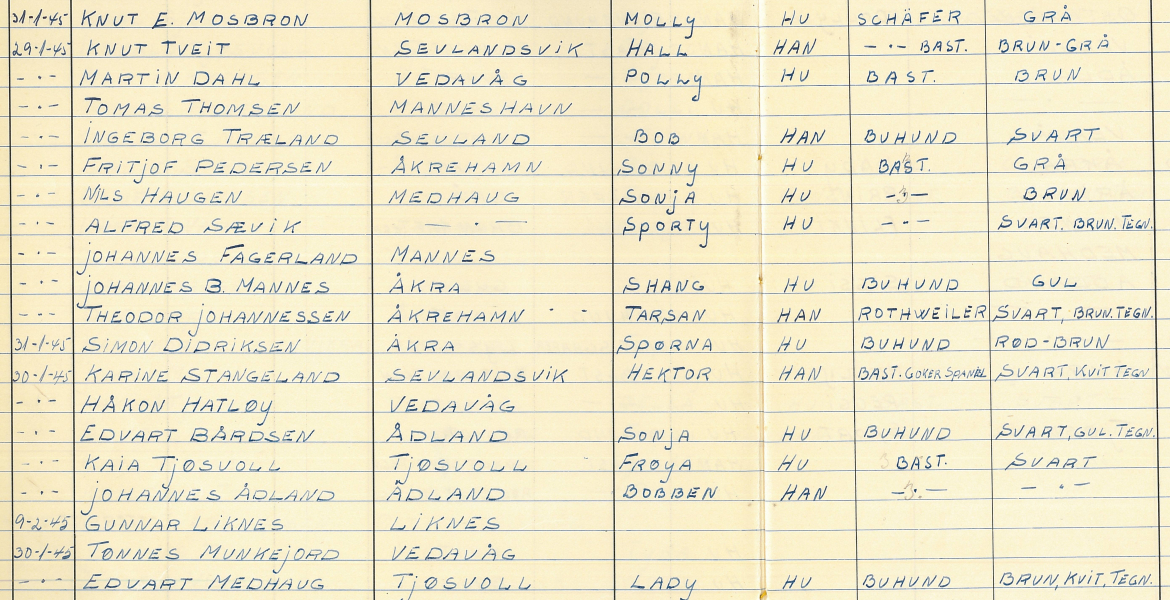 31-1-45 KNUT E. MOSBRON MOSBRON MOLLY HU SCHÄFER GRÅ
29-1-45 KNUT TVEIT SEVLANDSVIK HALL HAN -·- BAST. BRUN-GRÅ
-·- MARTIN DAHL VEDAVÅG POLLY HU BAST. BRUN
-·- TOMAS THOMSEN MANNESHAVN
-·- INGEBORG TRÆLAND SEVLAND BOB HAN BUHUND SVART
-·- FRITJOF PEDERSEN ÅKREHAMN SONNY HU BAST. GRÅ
-·- NILS HAUGEN MEDHAUG SONJA HU -·- BRUN
-·- ALFRED SÆVIK -·- SPORTY HU -·- SVART. BRUN. TEGN.
-·- JOHANNES FAGERLAND MANNES
-·- JOHANNES B. MANNES ÅKRA SHANG HU BUHUND GUL
-·- THEODOR JOHANNESSEN ÅKREHAMN TARSAN HAN ROTHWEILER SVART, BRUN.TEGN.
31-1-45 SIMON DIDRIKSEN ÅKRA SPØRNA HU BUHUND RØD-BRUN
30-1-45 KARINE STANGELAND SEVLANDSVIK HEKTOR HAN BAST. GOKER SPANIEL SVART, KVIT TEGN
-·- HÅKON HATLØY VEDAVÅG
-·- EDVART BÅRDSEN ÅDLAND SONJA HU BUHUND SVART, GUL. TEGN.
-·- KAIA TJØSVOLL TJØSVOLL FRØYA HU BAST. SVART
-·- JOHANNES ÅDLAND ÅDLAND BOBBEN HAN -·- -·-
9-2-45 GUNNAR LIKNES LIKNES
30-1-45 TØNNES MUNKEJORD VEDAVÅG
-·- EDVART MEDHAUG TJØSVOLL LADY HU BUHUND BRUN, KVIT, TEGN.